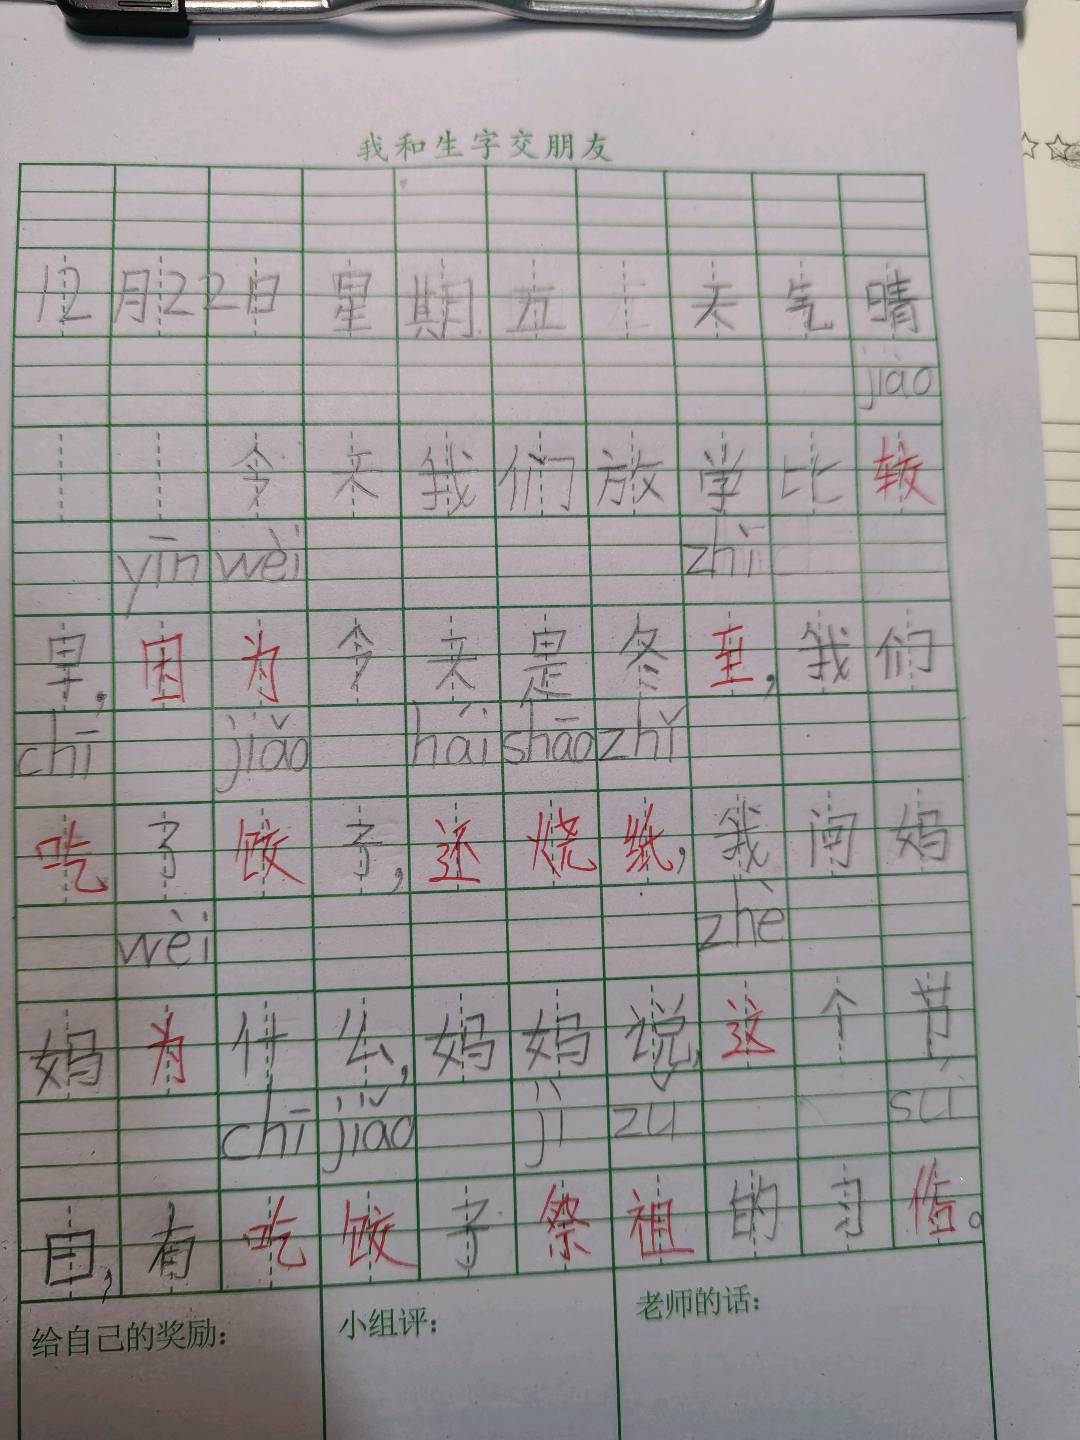 我和生字交朋友
12月22日星期五 天气晴
jiào
今天我们放学比较
yīn wèi zhì
早,因为今天是冬至,我们
chī jiǎo hái shāo zhǐ
吃了饺子,还烧纸,我问妈
wèi zhè
妈为什么,妈妈说,这个节
chī jiǎo jì zǔ sú
日,有吃饺子祭祖的习俗。
给自己的奖励:
小组评:
老师的话: